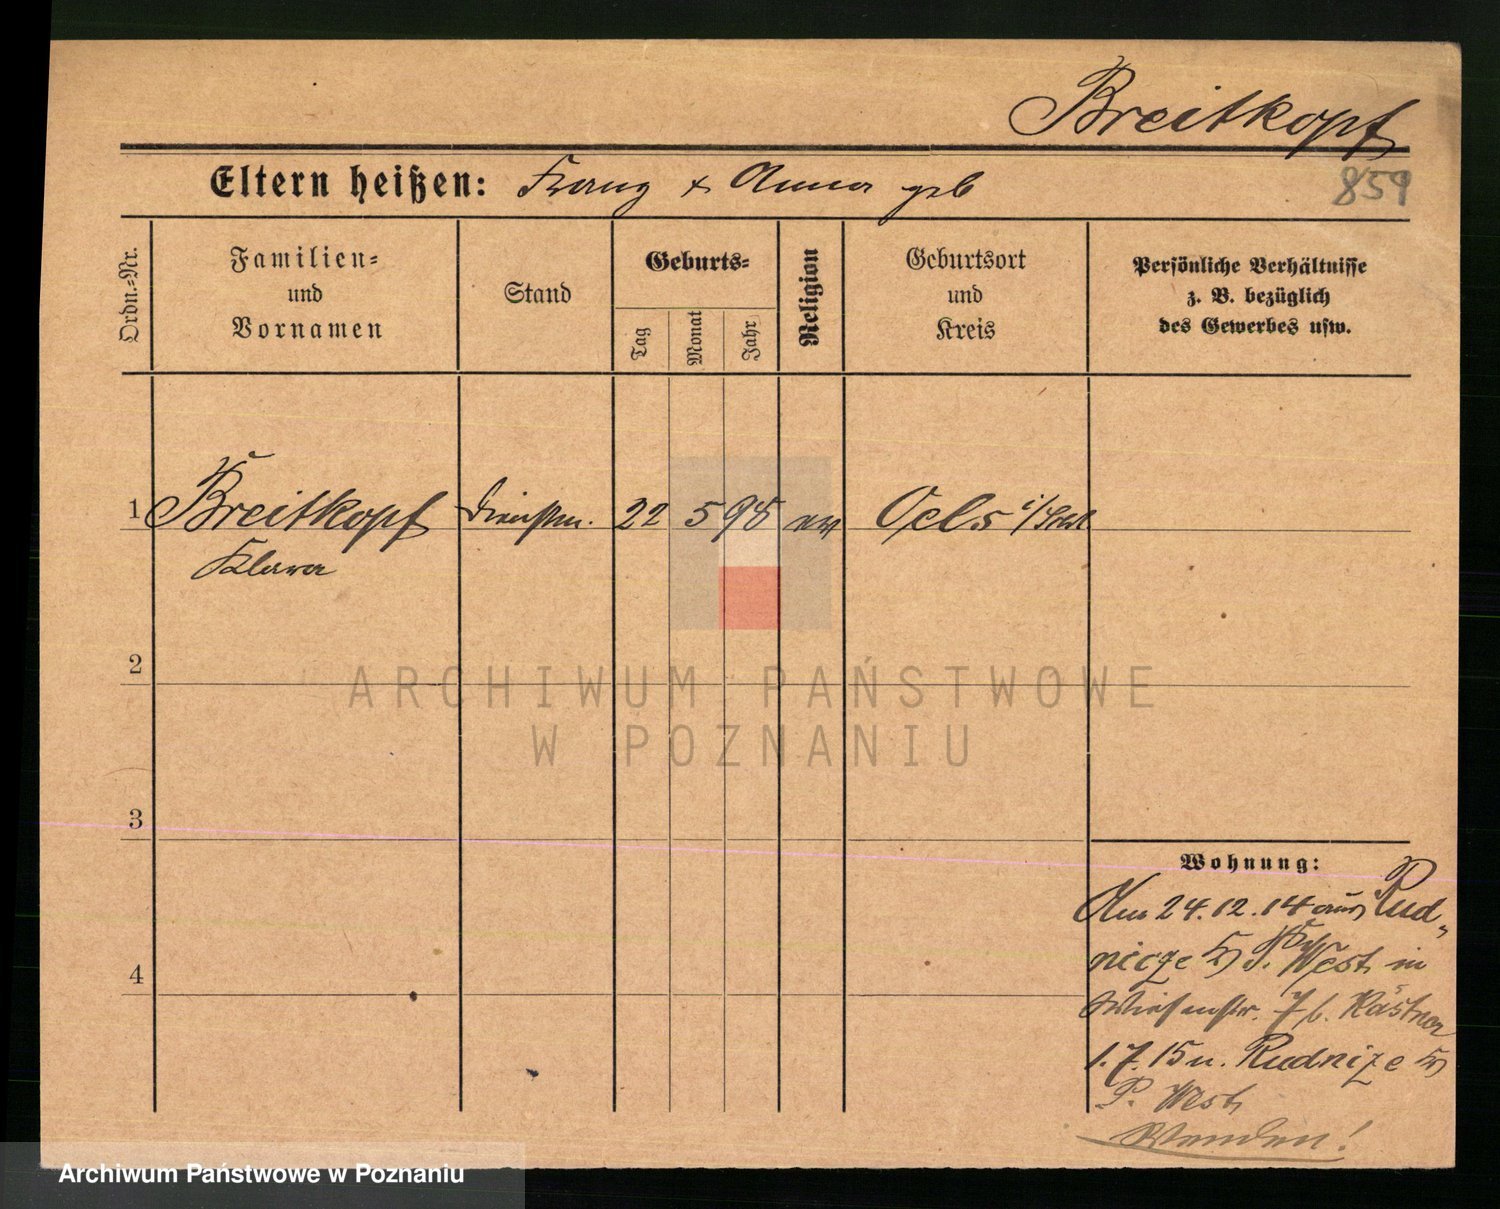 Breitkopf
Eltern heißen: Franz + Anna geb
859
Ordn.-Nr.
Familien-
und
Vornamen
Stand
Geburts-
Tag
Monat
Jahr
Religion
Geburtsort
und
Kreis
Persönliche Verhältnisse
z. B. bezüglich
des Gewerbes usw.
1 Breitkopf Dienstm. 22 5 98 ev Oels i/Schl
Klara
2
3
4
ARCHIWUM PAŃSTWOWE
W POZNANIU
Wohnung:
Am 24.12.14 aus Rud-
nicze Kr P. West in
Wiesenstr. 7 b. Kästner
1.7.15 n. Rudnize Kr
P. West
Wenden!
Archiwum Państwowe w Poznaniu